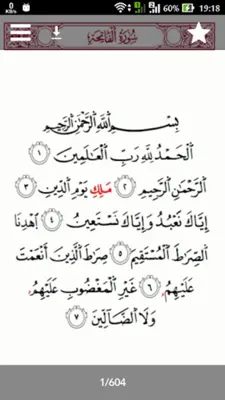 0 KB/s 60% 19:18
سُورَةُ الْفَاتِحَةِ
بِسْمِ اللَّهِ الرَّحْمَٰنِ الرَّحِيمِ
الْحَمْدُ لِلَّهِ رَبِّ الْعَٰلَمِينَ ١
الرَّحْمَٰنِ الرَّحِيمِ ٢ مَلِكِ يَوْمِ الدِّينِ ٣
إِيَّاكَ نَعْبُدُ وَإِيَّاكَ نَسْتَعِينُ ٤ اهْدِنَا
الصِّرَٰطَ الْمُسْتَقِيمَ ٥ صِرَٰطَ الَّذِينَ أَنْعَمْتَ
عَلَيْهِمْ ٦ غَيْرِ الْمَغْضُوبِ عَلَيْهِمْ
وَلَا الضَّآلِّينَ ٧
1/604